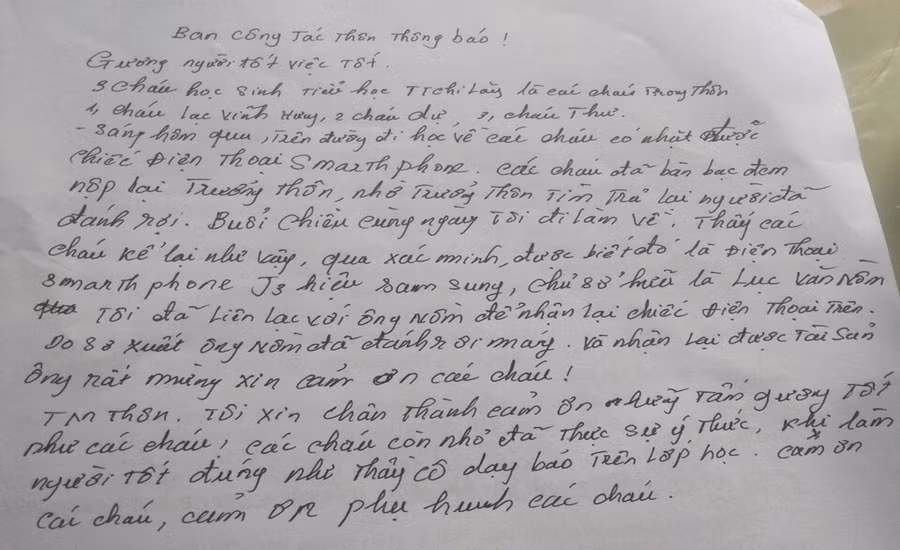 Ban công Tác Thôn Thông báo !
Gương người tốt việc Tốt.
3 cháu học sinh Tiểu học TT chi Lăng là các cháu Trong Thôn
1, cháu Lạc Vĩnh Hưng, 2 cháu dự, 3, cháu Thư.
- Sáng hôm qua, Trên đường đi học về các cháu có nhặt được
chiếc Điện Thoại Smarth phone. các cháu đã bàn bạc đem
nộp lại Trưởng thôn, nhờ Trưởng Thôn Tìm Trả lại người đã
đánh rơi. Buổi chiều cùng ngày Tôi đi làm về. Thấy các
cháu kể lại như vậy, qua xác minh, được biết đó là Điện Thoại
smarth phone J3 hiệu sam sung, chủ sở hữu là Lục Văn Nồm
Tôi đã Liên Lạc với ông Nồm để nhận lại chiếc Điện Thoại Trên.
Do sơ xuất ông Nồm đã đánh rơi máy. và nhận lại được Tài Sản
ông rất mừng xin cảm ơn các cháu !
TM Thôn. Tôi xin chân thành cảm ơn những tấm gương Tốt
như các cháu, các cháu còn nhỏ đã thực sự ý thức, khi làm
người Tốt đúng như Thầy cô dạy bảo Trên Lớp học. cảm ơn
các cháu, cảm ơn phụ huynh các cháu.